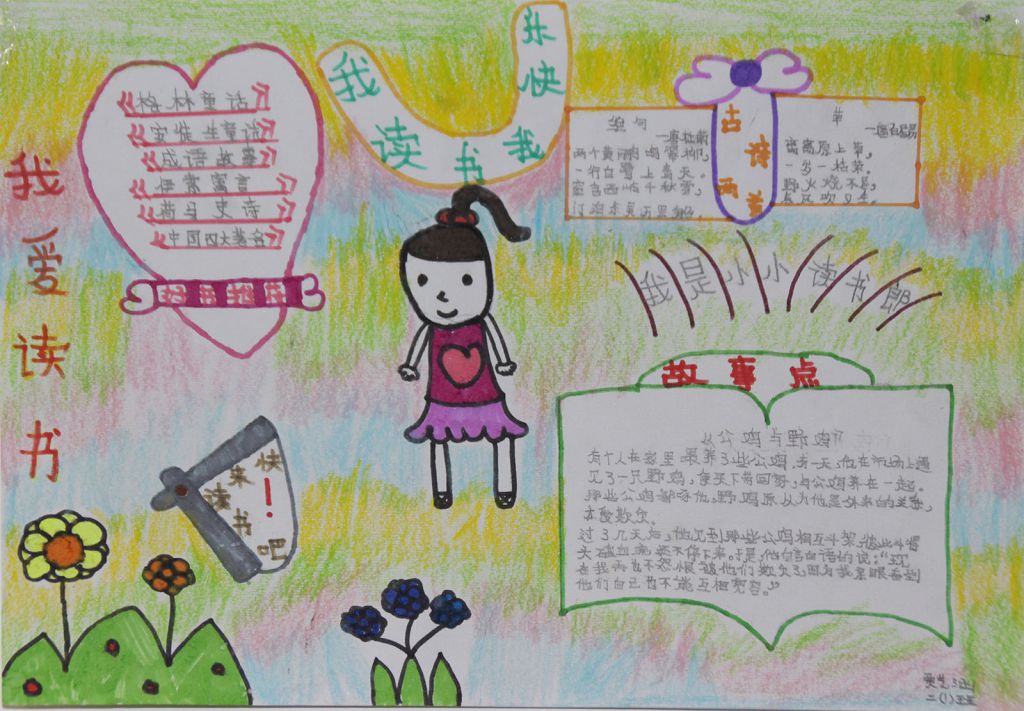 我爱读书
《格林童话》
《安徒生童话》
《成语故事》
《伊索寓言》
《荷马史诗》
《中国四大著名》
我读书我快乐
古诗两首
绝句
—唐杜甫
两个黄鹂鸣翠柳，
一行白鹭上青天。
窗含西岭千秋雪，
门泊东吴万里船。
草
—唐白居易
离离原上草，
一岁一枯荣。
野火烧不尽，
春风吹又生。
我是小小读书郎
快来读书吧！
故事点
《公鸡与野鸡》
有个人在家里喂养了些公鸡，有一天，他在市场上遇
见了一只野鸡，便买下带回家，与公鸡养在一起。
那些公鸡都啄他，野鸡原以为他是外来的
本受欺负。
过了几天后，他见到那些公鸡相互斗架，彼此斗得
头破血流还不停下来。于是，他自言自语的说：“现
在我再也不怨恨被他们欺负了，因为我亲眼看到
他们自己也不能互相宽容。”
二(1)班